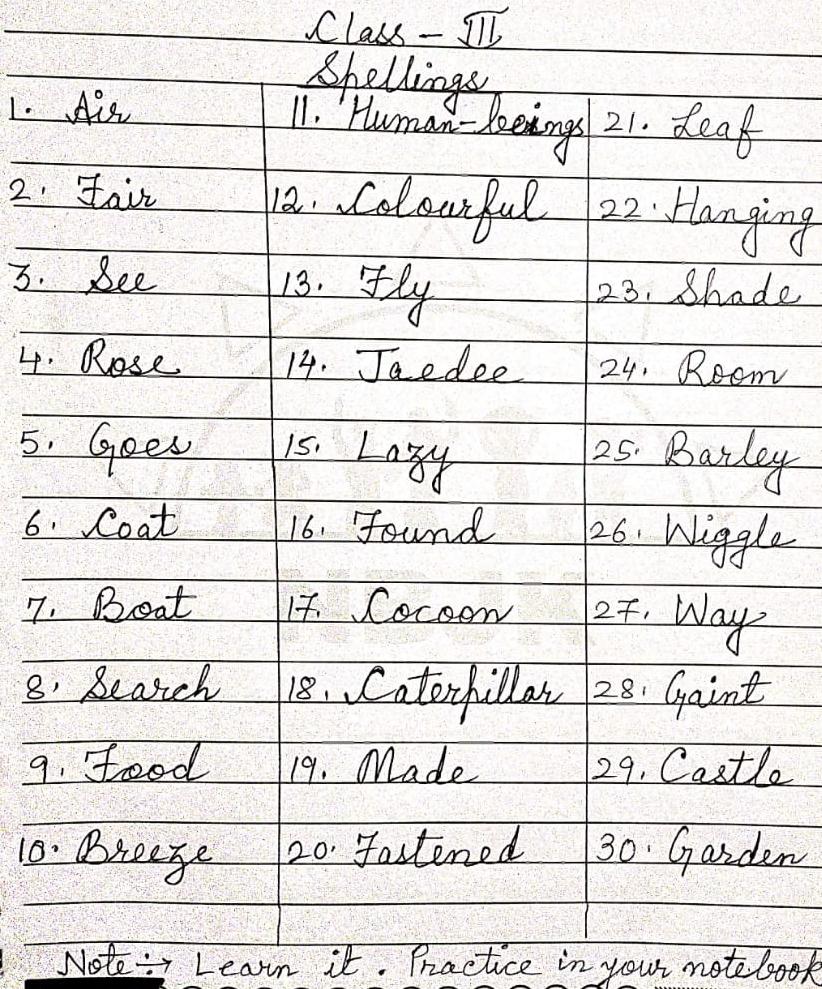 Class - III
Spellings
1. Air
2. Fair
3. See
4. Rose
5. Goes
6. Coat
7. Boat
8. Search
9. Food
10. Breeze
11. Human-beings
12. Colourful
13. Fly
14. Jaedee
15. Lazy
16. Found
17. Cocoon
18. Caterpillar
19. Made
20. Fastened
21. Leaf
22. Hanging
23. Shade
24. Room
25. Barley
26. Wiggle
27. Way
28. Gaint
29. Castle
30. Garden
Note :→ Learn it. Practice in your notebook